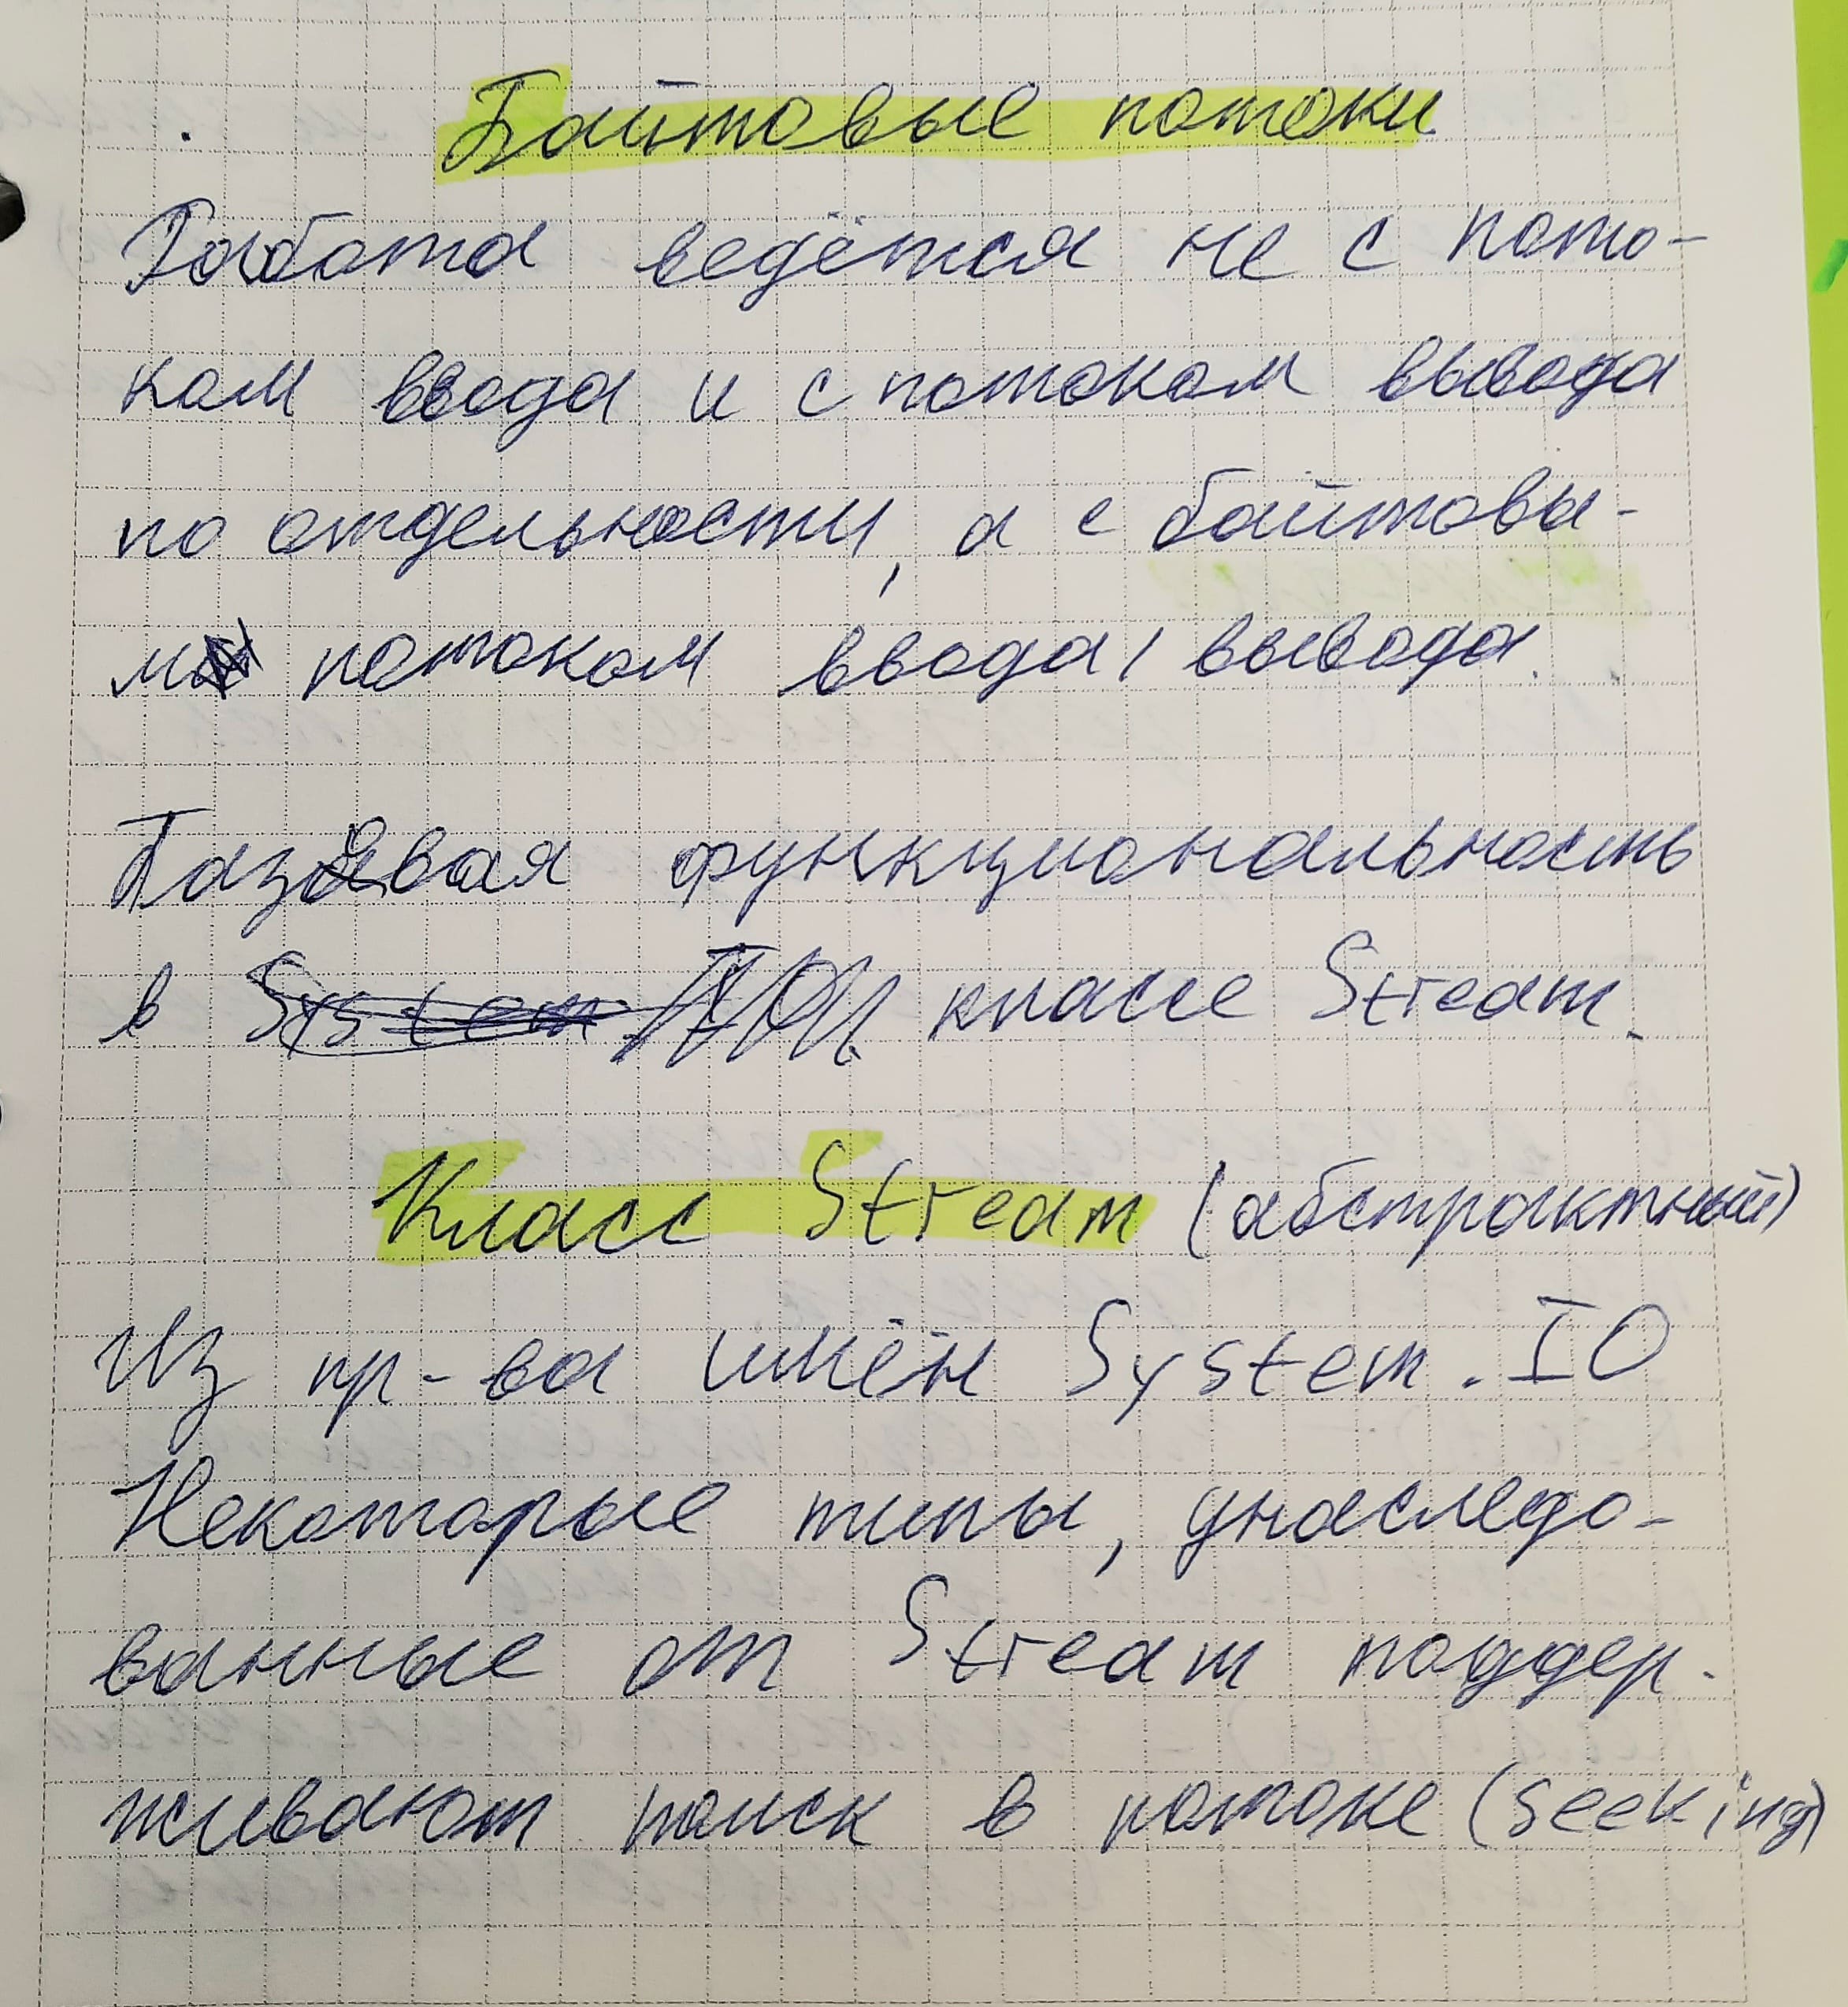 Байтовые потоки
Работа ведётся не с пото-
ком ввода и с потоком вывода
по отдельности, а с байтовы-
м потоком ввода/вывода.
Базовая функциональность
в классе Stream.
Класс Stream (абстрактный)
Из пр-ва имён System.IO
Некоторые типы, унаследо-
ванные от Stream поддер-
живают поиск в потоке (seeking)